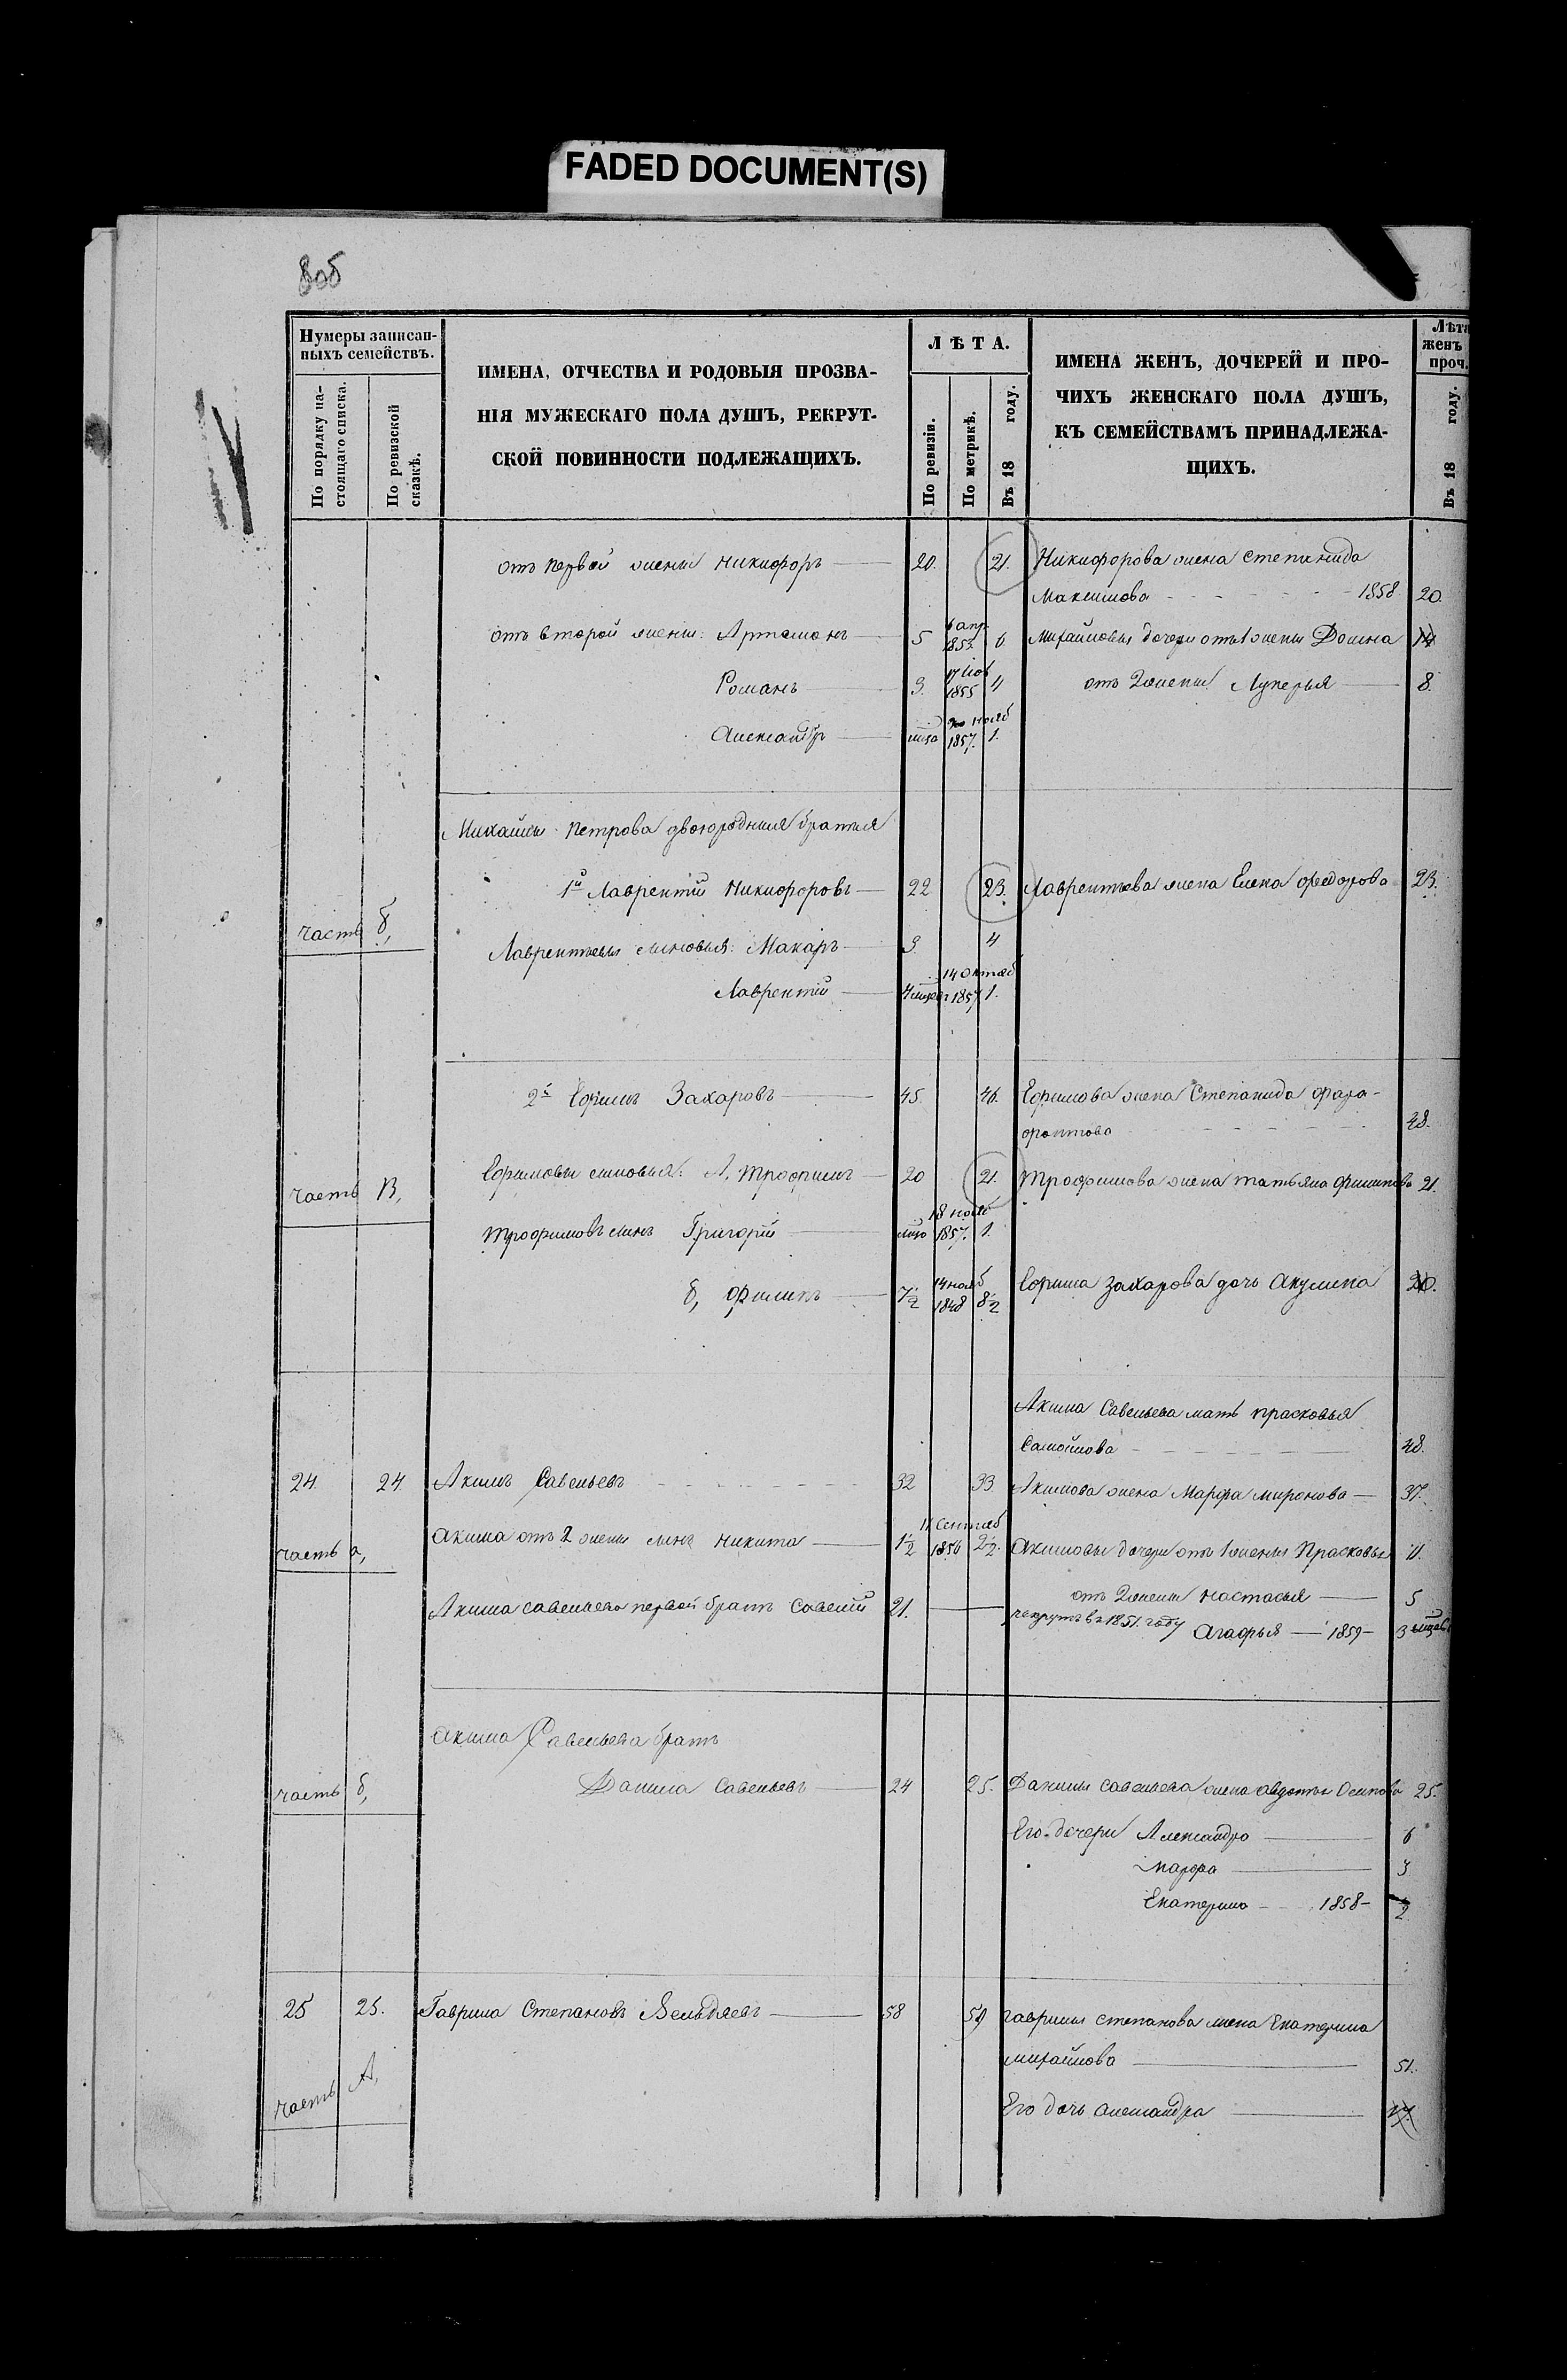 FADED DOCUMENT(S)
8об
Нумеры записан-
ныхъ семействъ.
По порядку на-
стоящаго списка.
По ревизской
сказкѣ.
ИМЕНА, ОТЧЕСТВА И РОДОВЫЯ ПРОЗВА-
НІЯ МУЖЕСКАГО ПОЛА ДУШЪ, РЕКРУТ-
СКОЙ ПОВИННОСТИ ПОДЛЕЖАЩИХЪ.
ЛѢТА.
По ревизіи.
По метрикѣ.
Въ 18 году.
ИМЕНА ЖЕНЪ, ДОЧЕРЕЙ И ПРО-
ЧИХЪ ЖЕНСКАГО ПОЛА ДУШЪ,
КЪ СЕМЕЙСТВАМЪ ПРИНАДЛЕЖА-
ЩИХЪ.
Лѣта
женъ
проч.
Въ 18 году.
отъ первой жены Никифоръ 20. 21. Никифорова жена Степанида
Максимова 1858 20.
отъ второй жены: Артамонъ 5 6 апр 1852 6. Михайловы дочери отъ 1 жены Домна 14
Романъ 3. 17 1855 4 отъ 2 жены Лукерья 8.
Александръ нояб 1857. 1.
Михайлы Петрова двоюродныя братья
1й Лаврентій Никифоровъ 22 23. Лаврентьева жена Елена Федорова 23.
часть б,
Лаврентьевы сыновья: Макаръ 3. 4
Лаврентій 14 Октяб 1857 1.
2й Ефимъ Захаровъ 45. 46. Ефимова жена Степанида Фара-
фонтова 48.
часть В,
Ефимовы сыновья: А, Трофимъ 20 21. Трофимова жена Татьяна Филипова 21.
Трофимовъ сынъ Григорій 18 нояб 1857. 1.
б, Филипъ 7½ 14 нояб 1848 8½ Ефима Захарова дочь Акулина 20.
Акима Савельева мать Прасковья
Самойлова 48.
24 24. Акимъ Савельевъ 32 33. Акимова жена Марфа Миронова 37.
часть а,
Акима отъ 2 жены сынъ Никита 1½ 11 Сентяб 1856 2½. Акимовы дочери отъ 1 жены Прасковья 11.
отъ 2 жены Настасья 5
Акима Савельева первой братъ Савелій 21. рекрутъ въ 1851. году
Агафья 1859 3 мцовъ
Акима Савельева братъ
часть б,
Данила Савельевъ 24 25. Данилы Савельева жена Авдотья Осипова 25.
Его дочери Александра 6
Марфа 3
Екатерина 1858 ½
25 25. Гаврила Степановъ Вельдяевъ 58 59 Гаврилы Степанова жена Екатерина
Михайлова 51.
часть А,
Его дочь Александра